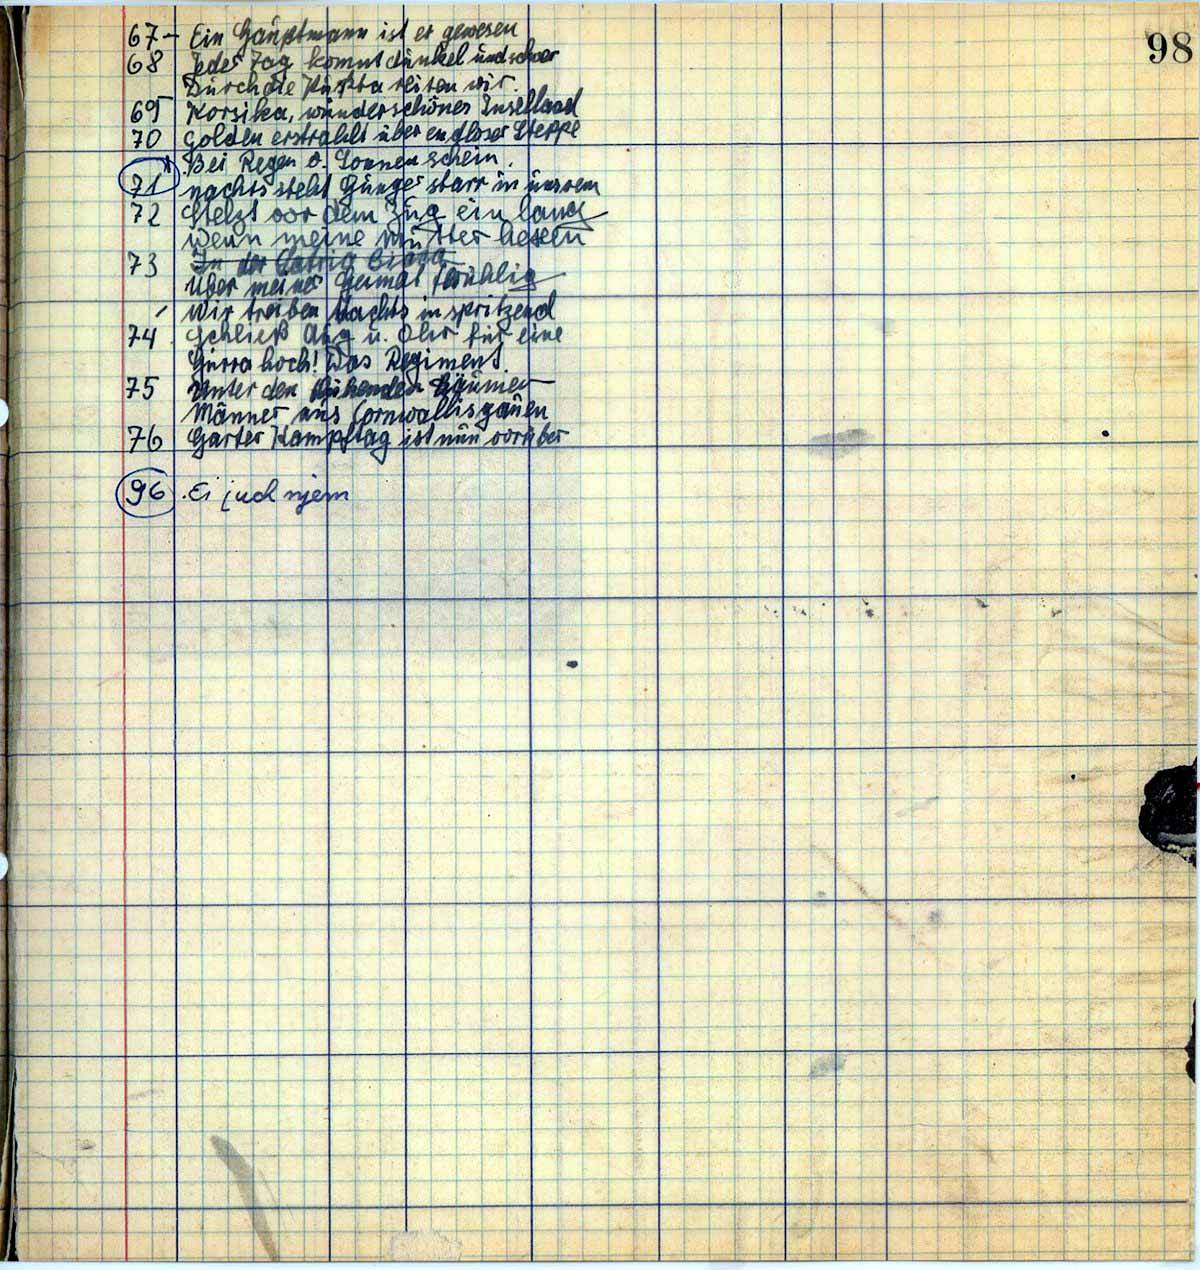 98
67- Ein Hauptmann ist er gewesen
68 Jeder Tag kommt dunkel und schwer
Durch die Puszta reiten wir.
69 Korsika, wunderschönes Inselland
70 Golden erstrahlt über endloser Steppe
Bei Regen o. Sonnenschein.
71 nachts steht Hunger starr in unsrem
72 Stelzt vor dem Zug ein lang
Wenn meine Mutter hexen
73 In der
Über meiner Heimat Frühling
Wir traben Nachts in spritzend
74 Schließ Aug u. Ohr für eine
Hurra hoch! Das Regiment.
75 Unter den blühenden Bäumen
Männer aus Cornwallisgauen
76 Harter Kampftag ist nun vorüber
96 . Ei juchnjem